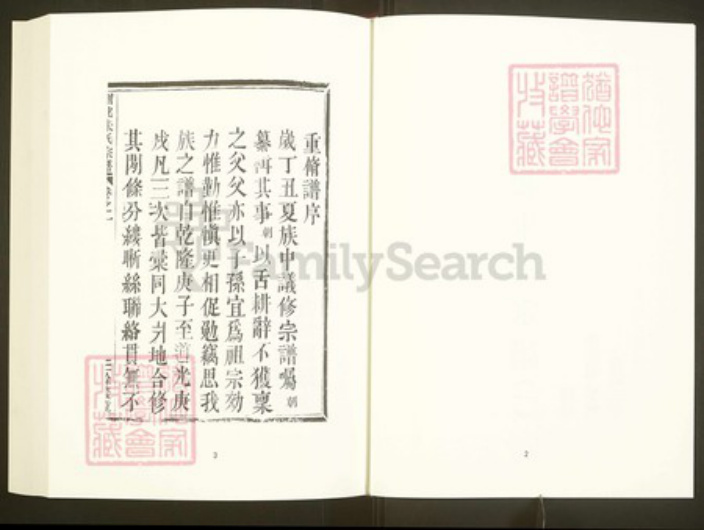 2
重脩譜序
歲丁丑夏族中議修宗譜囑朝
纂再其事朝以舌耕辭不獲稟
之父父亦以子孫宜爲祖宗効
力惟勤惟愼更相促勉竊思我
族之譜自乾隆庚子至道光庚
戌凡三次皆彙同大刋地合修
其間條分縷晰絲聯絡貫無不
氏宗譜 卷之一
3
FamilySearch
譜學會
收藏